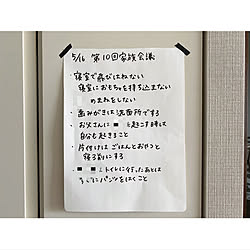 5/16 第10回家族会議
・寝室で飛びはねない
寝室におもちゃを持ち込まない
のまねをしない
・歯みがきは洗面所でする
・お父さんに を起こす時は
自分も起きること
・片付けは ごはんとおやつと
寝る前にする
・ トイレに行ったあとは
にパンツをはくこと